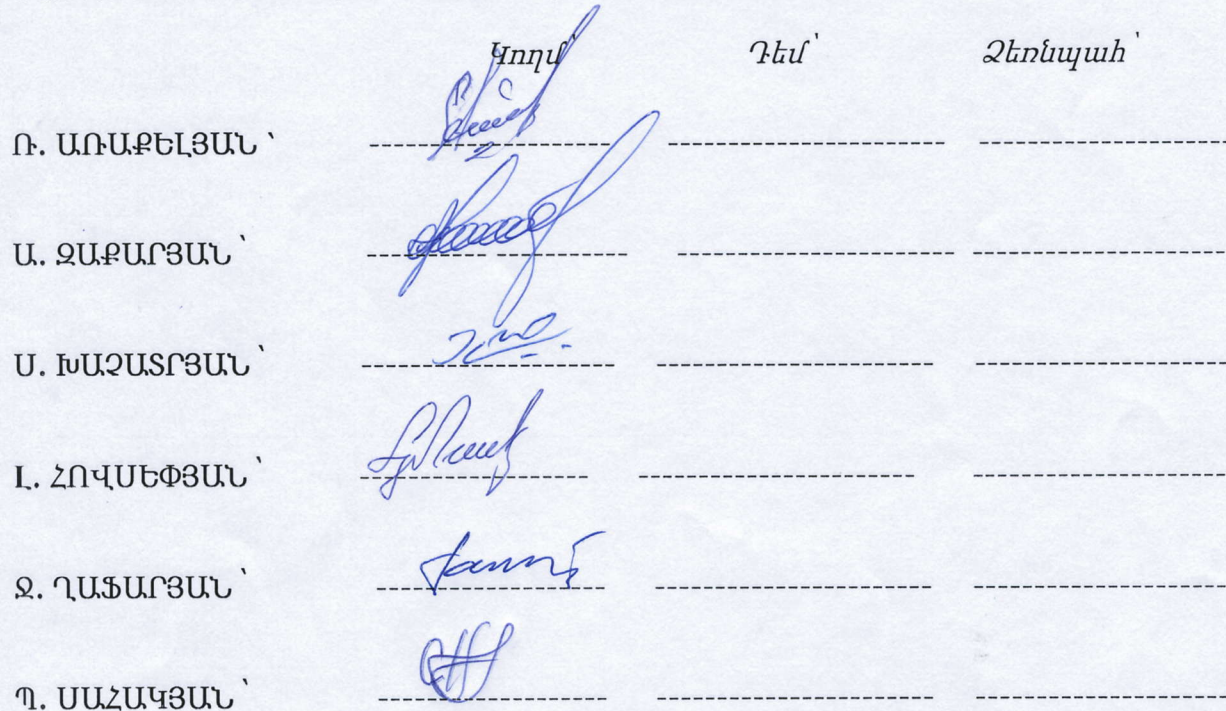 Կողմ՝ Դեմ՝ Ձեռնպահ՝
Ռ. ԱՌԱՔԵԼՅԱՆ՝
Ա. ԶԱՔԱՐՅԱՆ՝
Ս. ԽԱՉԱՏՐՅԱՆ՝
Լ. ՀՈՎՍԵՓՅԱՆ՝
Ջ. ՂԱՖԱՐՅԱՆ՝
Պ. ՍԱՀԱԿՅԱՆ՝